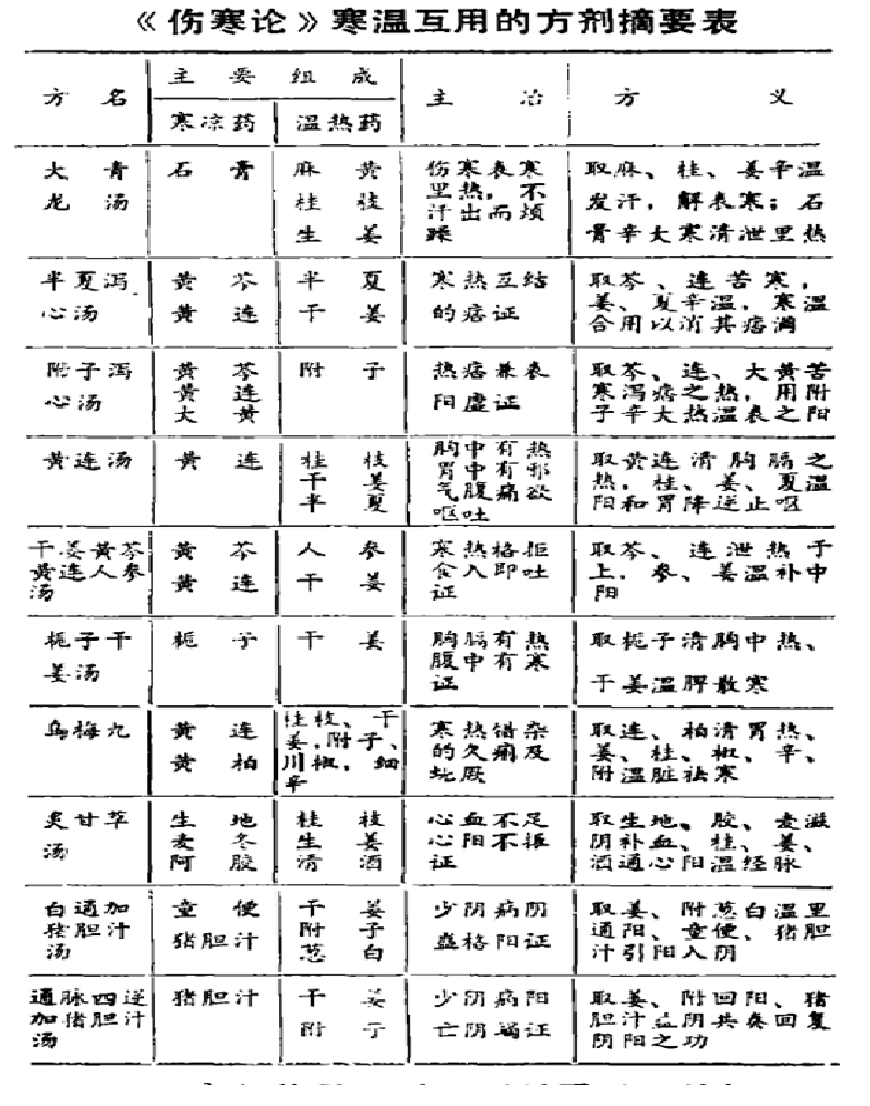 《伤寒论》寒温互用的方剂摘要表
方名 主要组成 主治 方义
寒凉药 温热药
大青 石膏 麻黄 伤寒表寒 取麻、桂、姜辛温
龙汤 桂枝 里热，不 发汗，解表寒；石
生姜 汗出而烦 膏辛大寒清泄里热
躁
半夏泻 黄芩 半夏 寒热互结 取芩、连苦寒，
心汤 黄连 干姜 的痞证 姜、夏辛温，寒温
合用以消其痞满
附子泻 黄芩 附子 热痞兼表 取芩、连、大黄苦
心汤 黄连 阳虚证 寒泻痞之热，用附
大黄 子辛大热温表之阳
黄连汤 黄连 桂枝 胸中有热 取黄连清胸膈之
干姜 胃中有邪 热，桂、姜、夏温
半夏 气腹痛欲 阳和胃降逆止呕
呕吐
干姜黄芩 黄芩 人参 寒热格拒 取芩、连泄热于
黄连人参 黄连 干姜 食入即吐 上，参、姜温补中
汤 证 阳
栀子干 栀子 干姜 胸膈有热 取栀子清胸中热、
姜汤 腹中有寒 干姜温脾散寒
证
乌梅九 黄连 桂枝、干 寒热错杂 取连、柏清胃热、
黄柏 姜，附子、 的久痢及 姜、桂、椒、辛、
川椒，细 蚘厥 附温脏祛寒
辛
炙甘草 生地 桂枝 心血不足 取生地、胶、麦滋
汤 麦冬 生姜 心阳不振 阴补血、桂、姜、
阿胶 清酒 证 酒通心阳温经脉
白通加 童便 干姜 少阴病阴 取姜、附葱白温里
猪胆汁 猪胆汁 附子 盛格阳证 通阳、童便、猪胆
汤 葱白 汁引阳入阴
通脉四逆 猪胆汁 干姜 少阴病阳 取姜、附回阳、猪
加猪胆汁 附子 亡阴竭证 胆汁益阴共奏回复
汤 阴阳之功